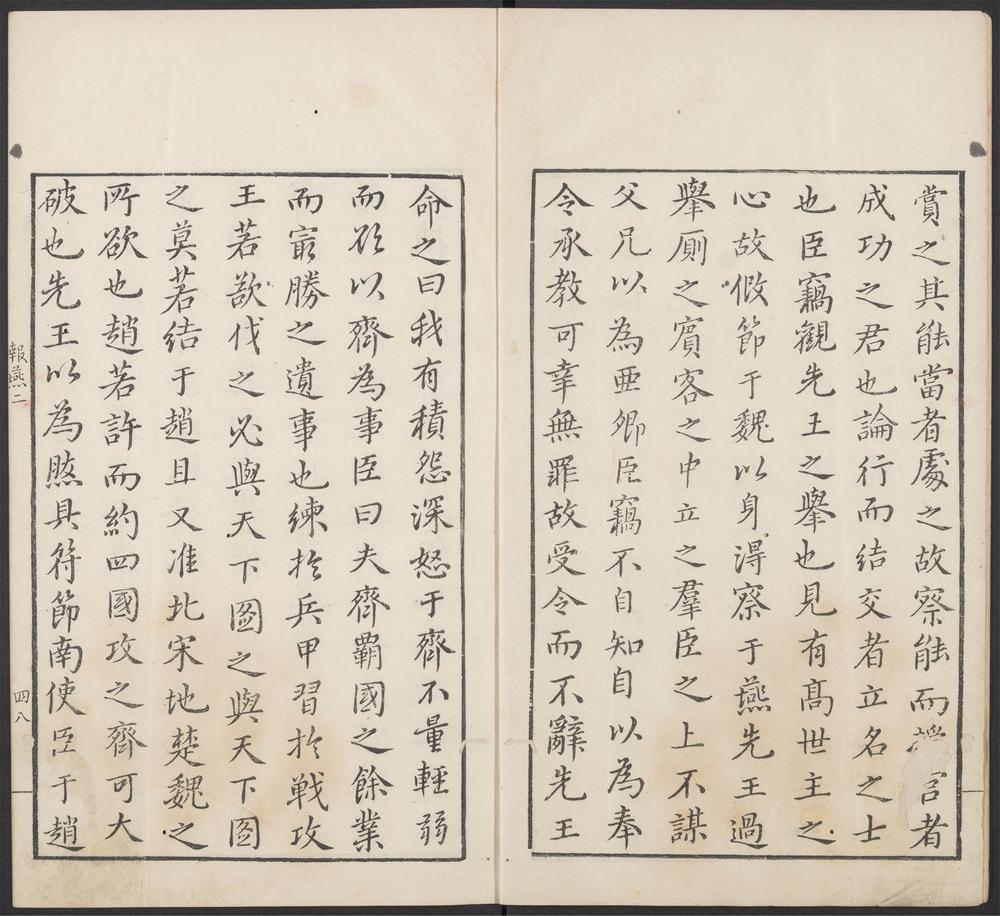 賞之其能當者處之故察能而者
成功之君也論行而結交者立名之士
也臣竊觀先王之舉也見有髙世主之
心故假節于魏以身得察于燕先王過
舉厠之賓客之中立之羣臣之上不謀
父兄以為亜卿臣竊不自知自以為奉
令承教可幸無罪故受令而不辭先王
命之曰我有積怨深怒于齊不量輕弱
而欲以齊為事臣曰夫齊覇國之餘業
而㝡勝之遺事也練扵兵甲習扵戦攻
王若欲伐之必與天下圖之與天下圖
之莫若結于趙且又淮北宋地楚魏之
所欲也趙若許而約四國攻之齊可大
破也先王以為然具符節南使臣于趙
報燕二
四八